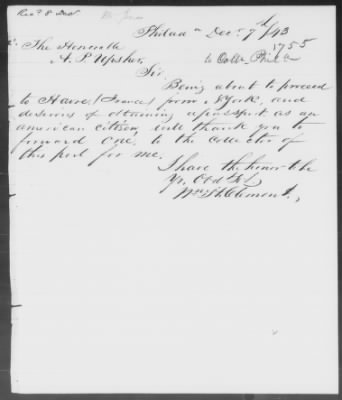 Rec.d 8 Dec
Philad.a Dec. 7th/43
The Honorable 1755
A. P. Upshur, to Coll. Phil.a
Sir
Being about to proceed
to Havre (France) from N York, and
desirous of obtaining a passport as an
american citizen, will thank you to
forward one, to the Collector of
this port for me.
I have the honor to be
Yr. Obd St.
Wm. St.Clermont.